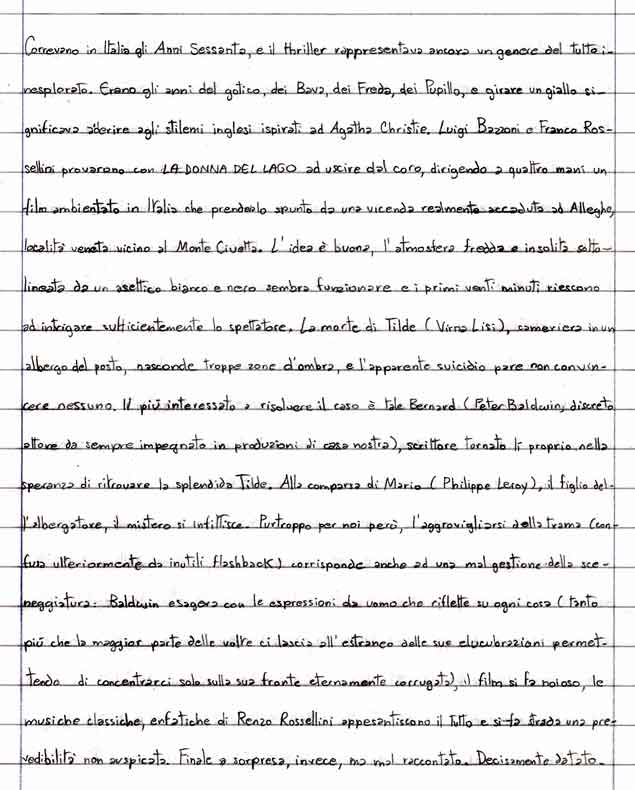 Correvano in Italia gli Anni Sessanta, e il thriller rappresentava ancora un genere del tutto i-
nesplorato. Erano gli anni del gotico, dei Bava, dei Freda, dei Pupillo, e girare un giallo si-
gnificava aderire agli stilemi inglesi ispirati ad Agatha Christie. Luigi Bazzoni e Franco Ros-
sellini provarono con LA DONNA DEL LAGO ad uscire dal coro, dirigendo a quattro mani un
film ambientato in Italia che prendealo spunto da una vicenda realmente accaduta ad Alleghe,
località veneta vicino al Monte Civetta. L'idea è buona, l'atmosfera fredda e insolita sotto-
lineata da un asettico bianco e nero sembra funzionare e i primi venti minuti riescono
ad intrigare sufficientemente lo spettatore. La morte di Tilde (Virna Lisi), cameriera in un
albergo del posto, nasconde troppe zone d'ombra, e l'apparente suicidio pare non convin-
cere nessuno. Il più interessato a risolvere il caso è tale Bernard (Peter Baldwin, discreto
attore da sempre impegnato in produzioni di casa nostra), scrittore tornato lì proprio nella
speranza di ritrovare la splendida Tilde. Alla comparsa di Mario (Philippe Leroy), il figlio del-
l'albergatore, il mistero si infittisce. Purtroppo per noi però, l'aggrovigliarsi della trama (con-
fusa ulteriormente da inutili flashback) corrisponde anche ad una mal gestione della sce-
neggiatura: Baldwin esagera con le espressioni da uomo che riflette su ogni cosa (tanto
più che la maggior parte delle volte ci lascia all'estraneo delle sue elucubrazioni permet-
tendo di concentrarci solo sulla sua fronte eternamente corrugata), il film si fa noioso, le
musiche classiche, enfatiche di Renzo Rossellini appesantiscono il tutto e si fa strada una pre-
vedibilità non auspicata. Finale a sorpresa, invece, ma mal raccontato. Decisamente datato.